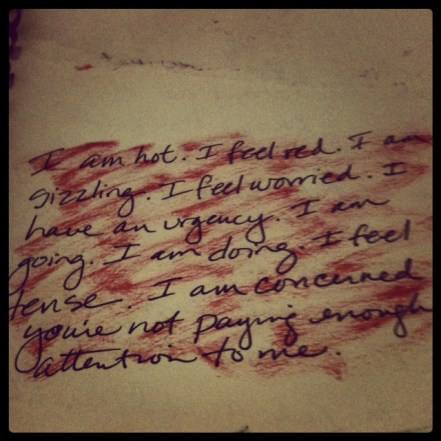 I am hot. I feel red. I am
sizzling. I feel worried. I
have an urgency. I am
going. I am doing. I feel
tense. I am concerned
you're not paying enough
attention to me.